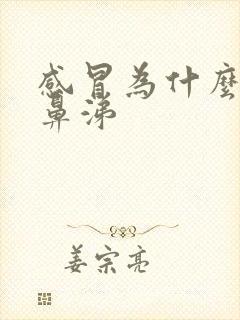 感冒為什麼
鼻涕
姜宗亮